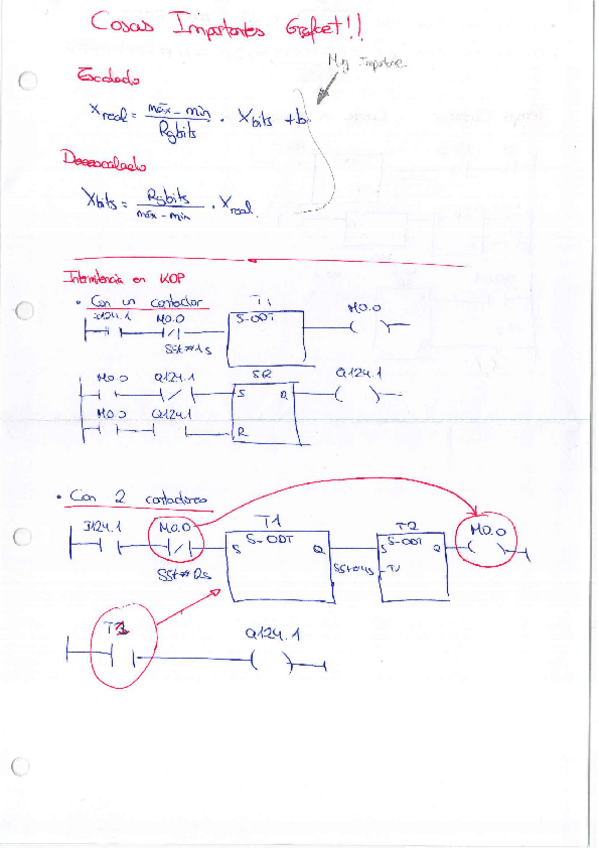 Cosas Importantes Grafcet!!
Muy Importante.
Escalado
Xreal = máx - min / Rgbits · Xbits + b
Desescalado
Xbits = Rgbits / máx - min · Xreal.
Intermitencia en KOP
• Con un contador
I124.1 M0.0 T1 S-ODT M0.0
S5t#1s
M0.0 Q124.1 SR S Q Q124.1
M0.0 Q124.1 R
• Con 2 contadores
I124.1 M0.0 T1 S S-ODT Q T2 S S-ODT Q M0.0
S5t#2s S5t#4s TV
Q124.1